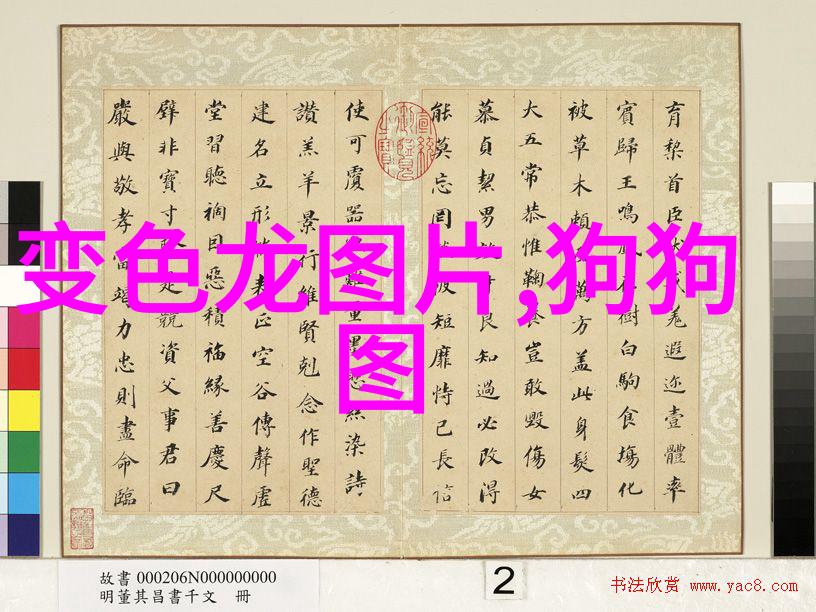 育黎首臣伏戎羌遐迩壹體率
賓歸王鳴鳳在樹白駒食場化
被草木賴及萬方盖此身髮四
大五常恭惟鞠養豈敢毀傷女
慕貞絜男才良知過必改得
能莫忘罔彼短靡恃己長信
使可覆器難量墨悲絲染詩
讚羔羊景行維賢剋念作聖德
建名立形端表正空谷傳聲虛
堂習聽禍因惡積福緣善慶尺
璧非寶寸是競資父事君曰
嚴與敬孝當竭力忠則盡命臨
变色龙图片,狗狗
图
故書 000206N000000000
明董其昌書千文 冊
2
书法欣赏 www.yac8.com